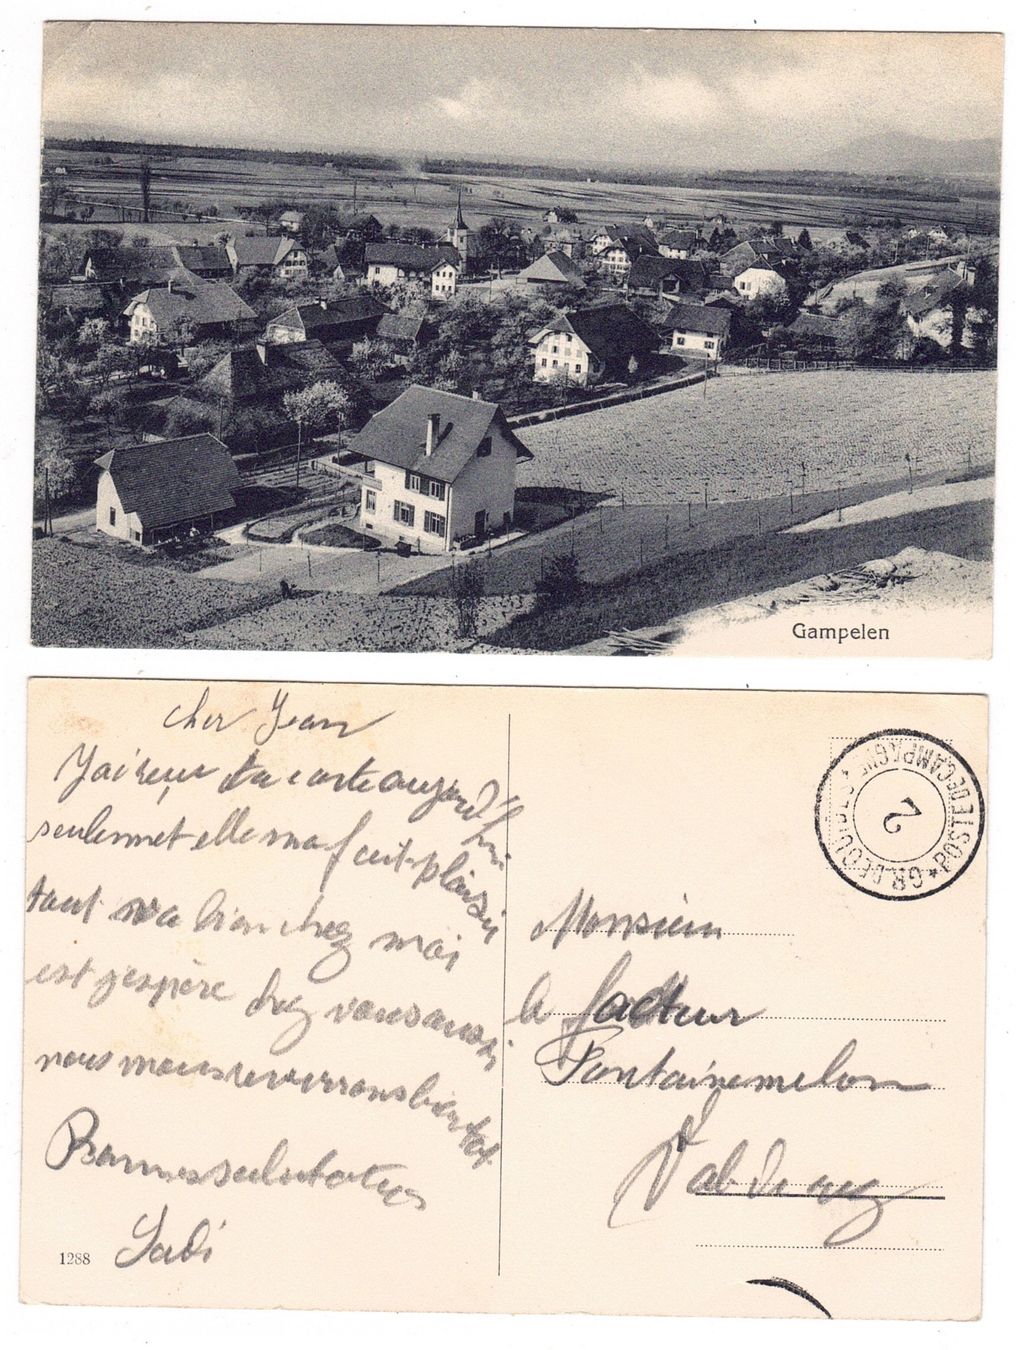 Gampelen
cher Jean
J'ai reçu ta carte aujourd'hui
seulemnet elle ma fait plaisir
tout va bien chez moi
est j'espère chez vous aussi
nous nous reverrons bientot
Bonnes salutation
Sadi
1288
Monsieur
le facteur
Fontainemelon
Val de ruz
POSTE DE CAMPAGNE * GR.
2